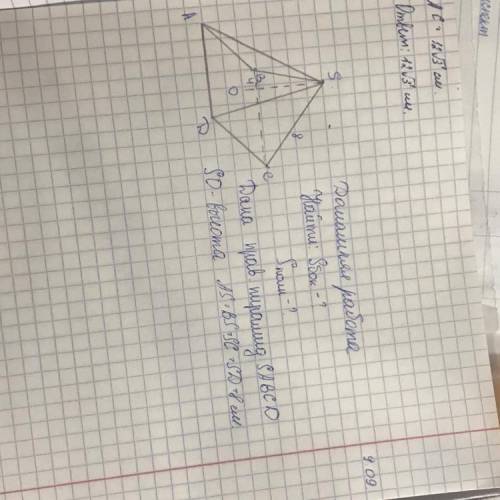 AC = 12√3 см.
Ответ: 12√3 см.
9.09
Домашняя работа
Найти: Sбок - ?
Sполн - ?
Дана прав пирамид SABCD
SO - высота AS=BS=SC=SD=8 см.
S
8
A
B
4
O
D
C